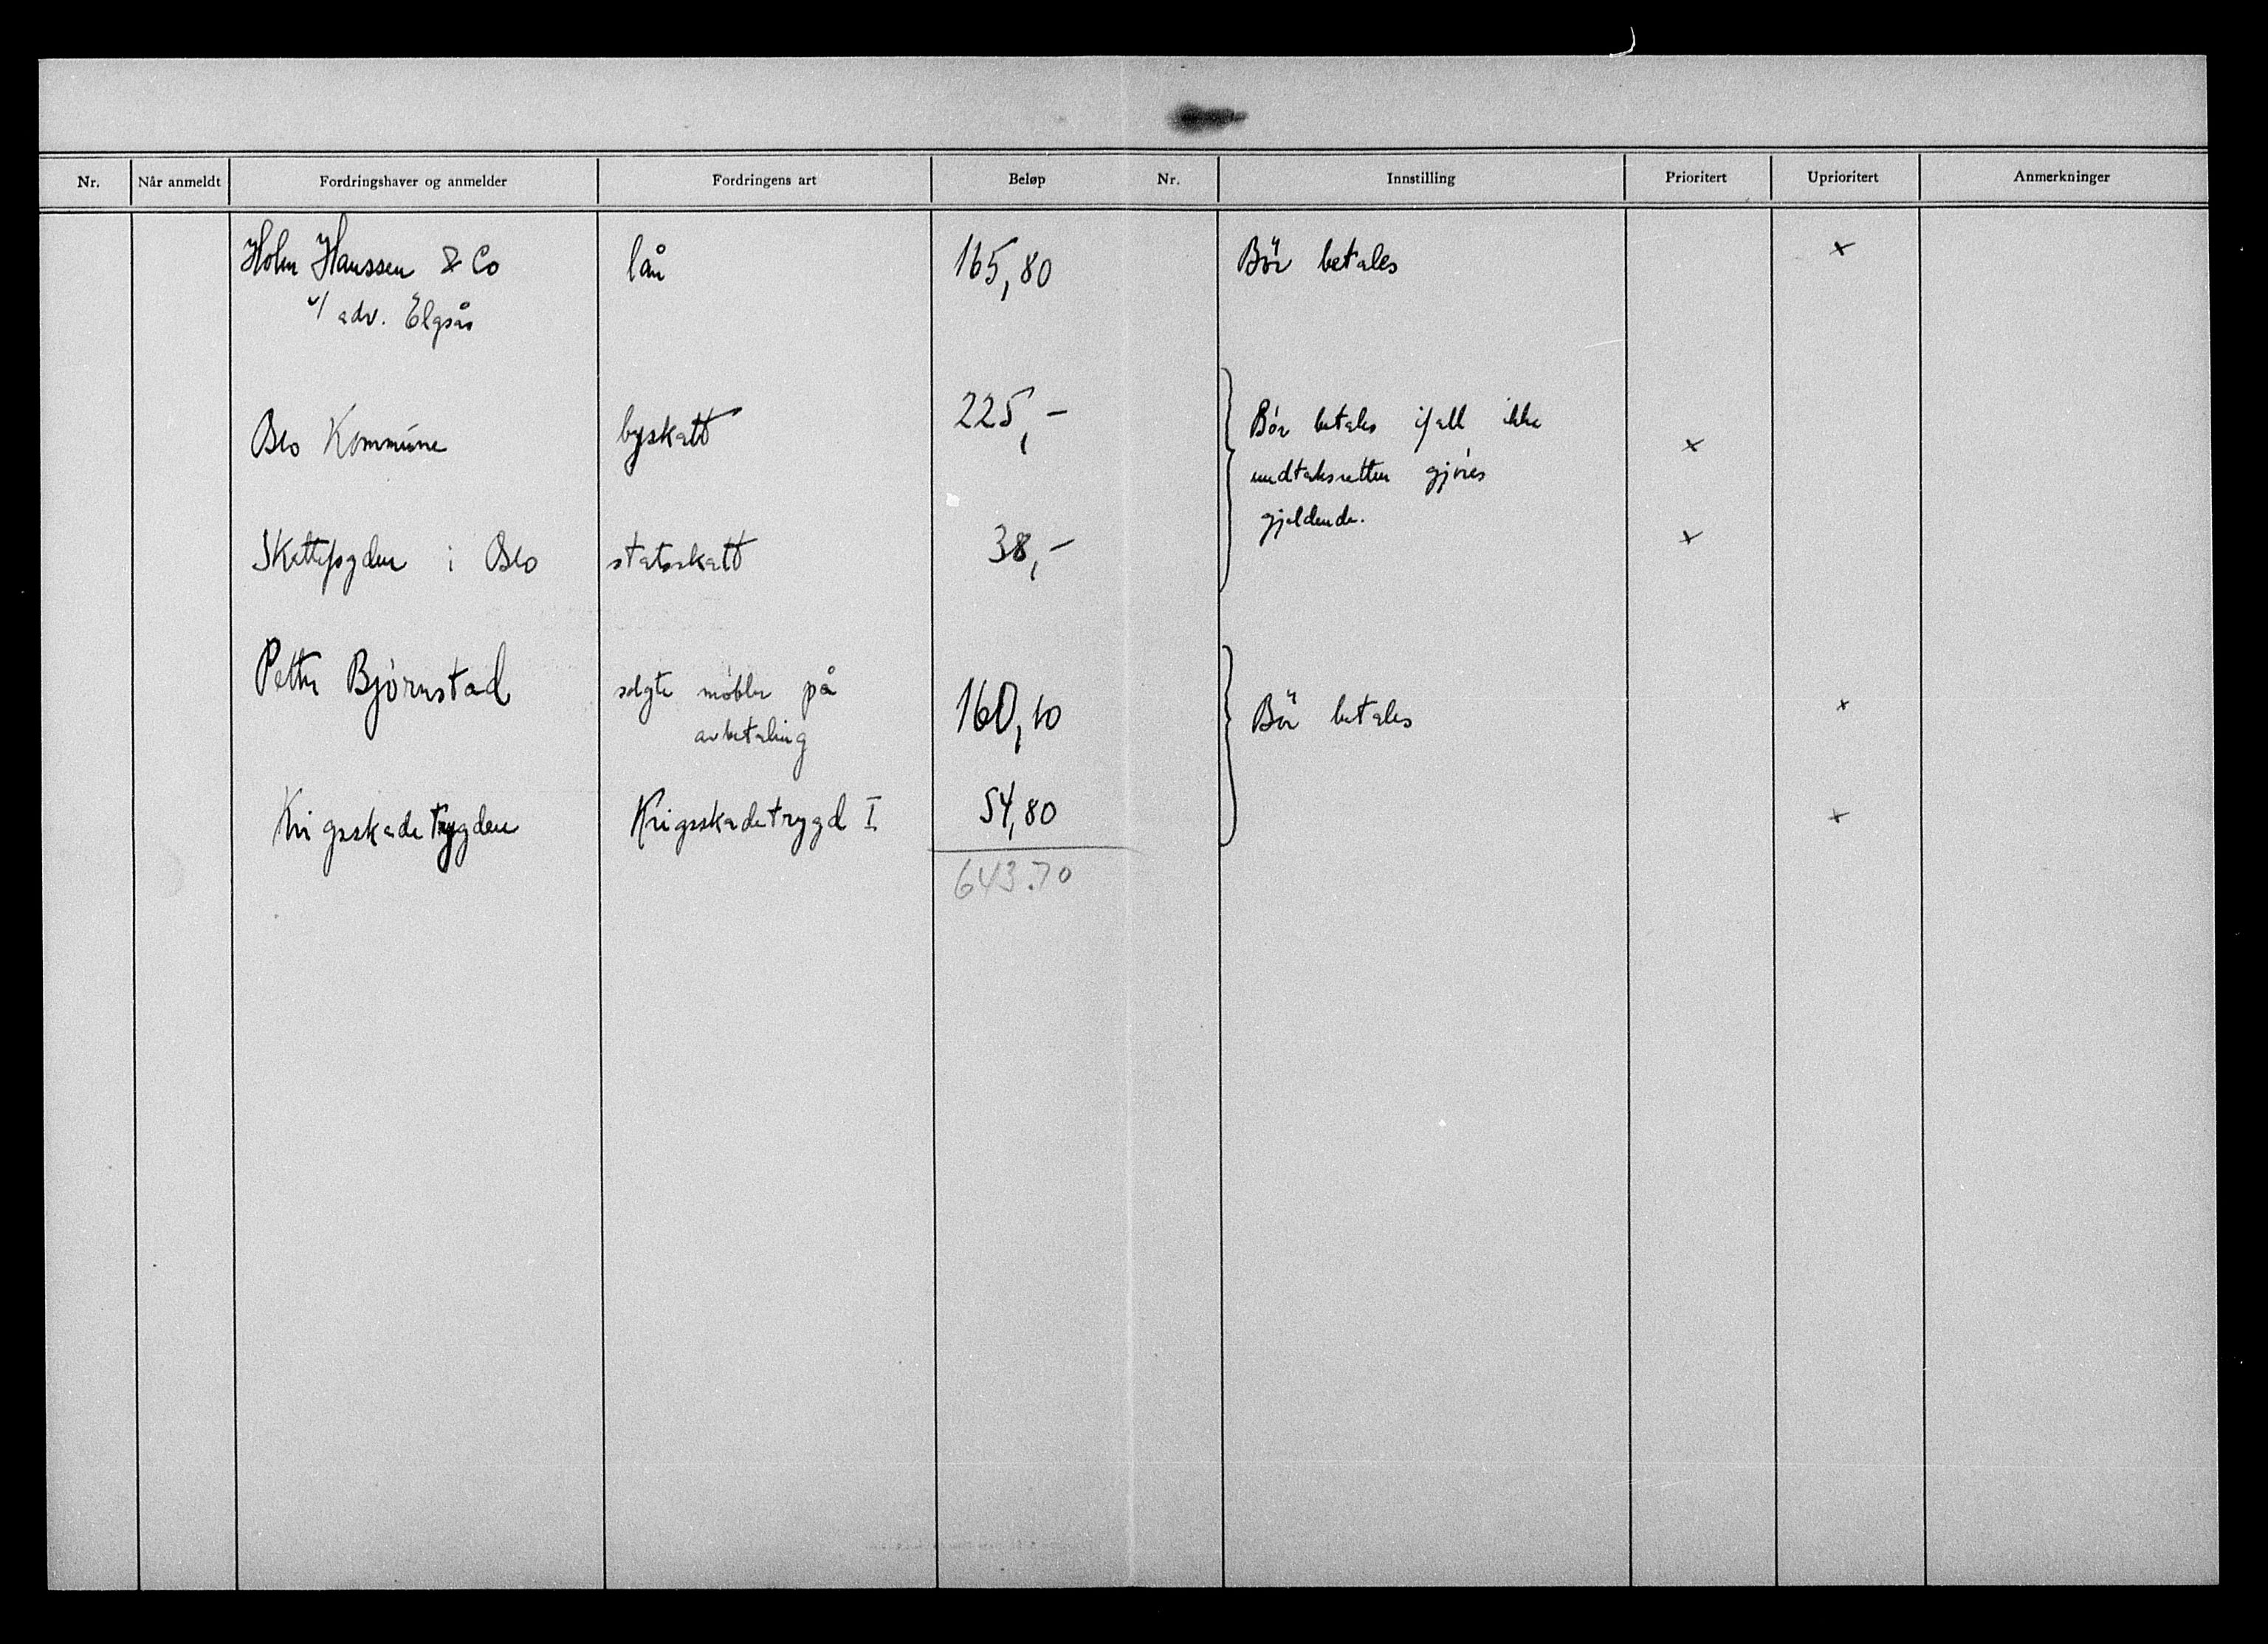 Nr. Når anmeldt Fordringshaver og anmelder Fordringens art Beløp Nr. Innstilling Prioritert Uprioritert Anmerkninger
Holm Hanssen & Co lån 165,80 Bör betales x
v/ adv. Elgsås
Oslo Kommune byskatt 225,- Bör betales ifall ikke x
undtaksretten gjöres
gjeldende.
Skattefogden i Oslo statsskatt 38,- x
Petter Björnstad solgte möbler på 160,10 Bör betales x
avbetaling
Krigsskadetrygden Krigsskadetrygd I 54,80 x
643.70